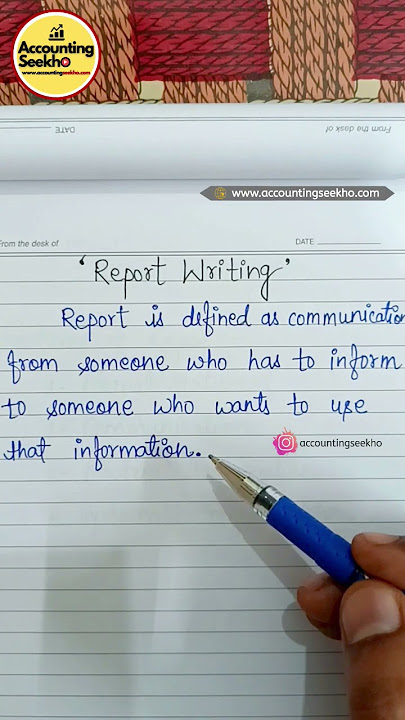 Accounting
Seekho
www.accountingseekho.com
DATE
From the desk of
www.accountingseekho.com
From the desk of
DATE
'Report Writing'
Report is defined as communication
from someone who has to inform
to someone who wants to use
that information.
accountingseekho